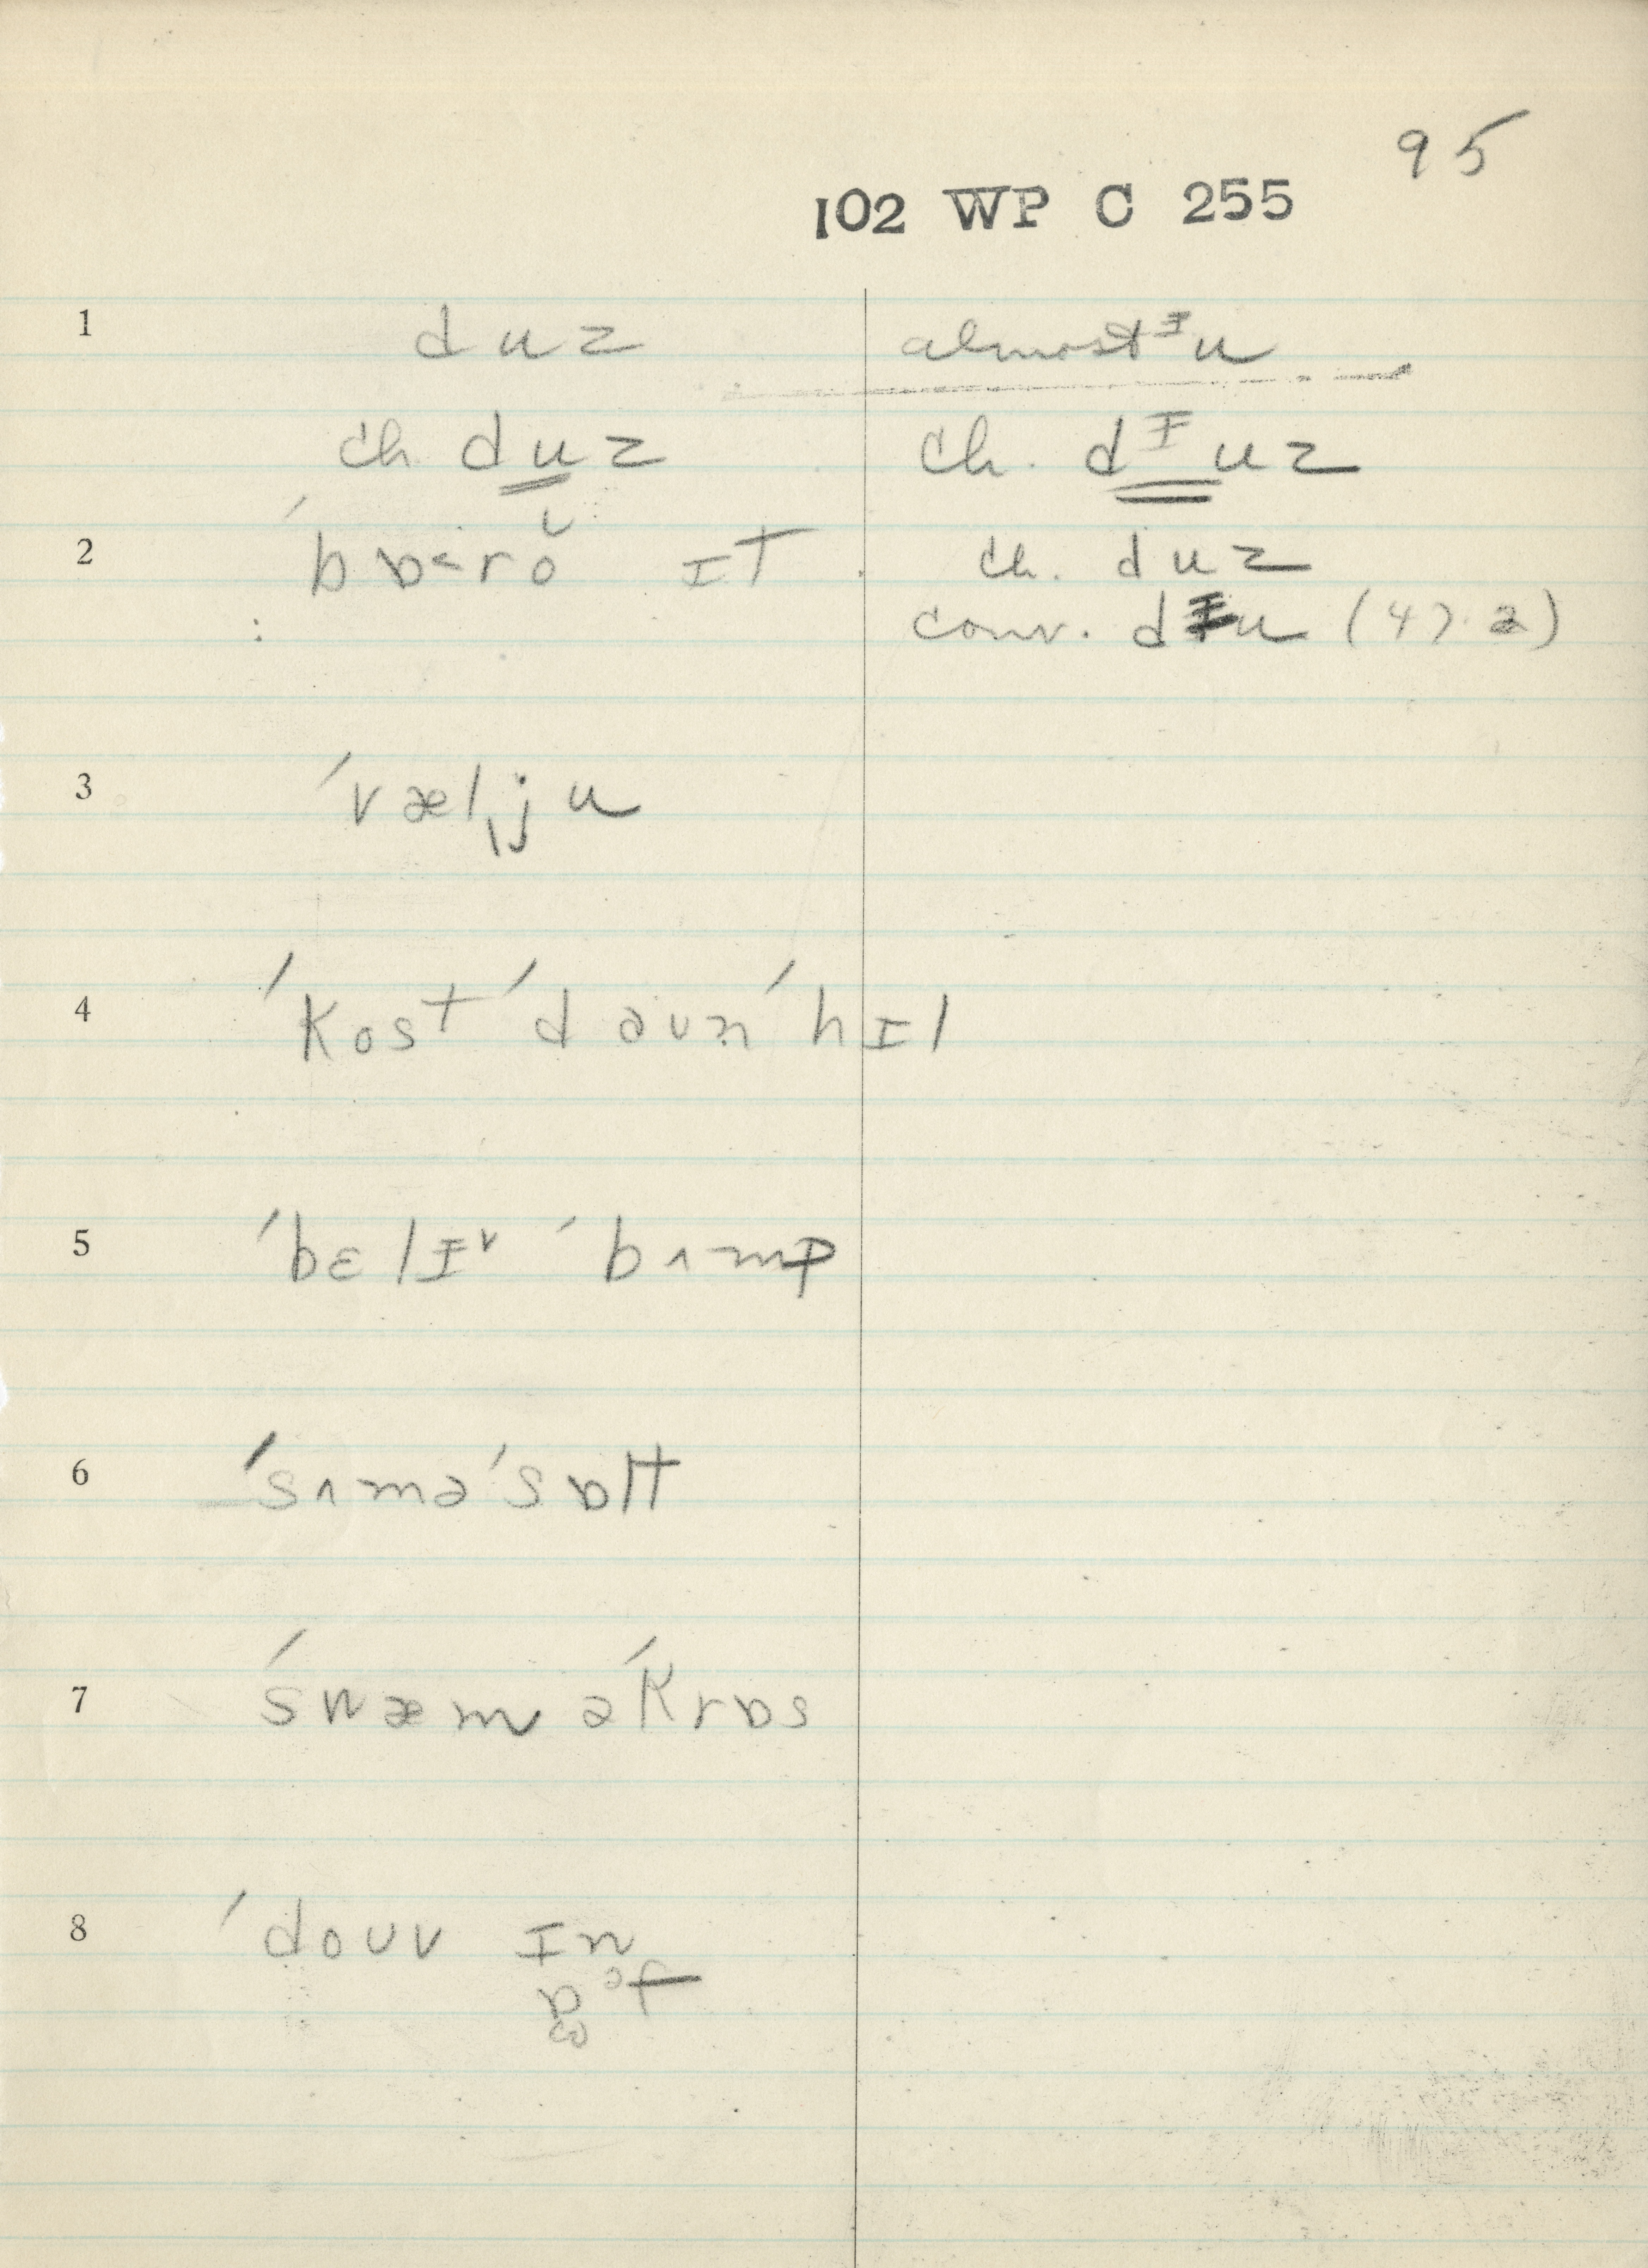 95
102 WP C 255
1 duz almost ᵻu
ch. duz ch. dᵻuz
2 ˈbɒ˂rŏ ɪt ch. duz
conv. dᵻu (47.2)
3 ˈvælˌju
4 ˈkost ˈdaʊn ˈhɪl
5 ˈbɛlɪ˅ ˈbʌmp
6 ˈsʌməˈsɒlt
7 ˈswæm əˈkrɒs
8 ˈdoʊv ɪn
ɒᵊf